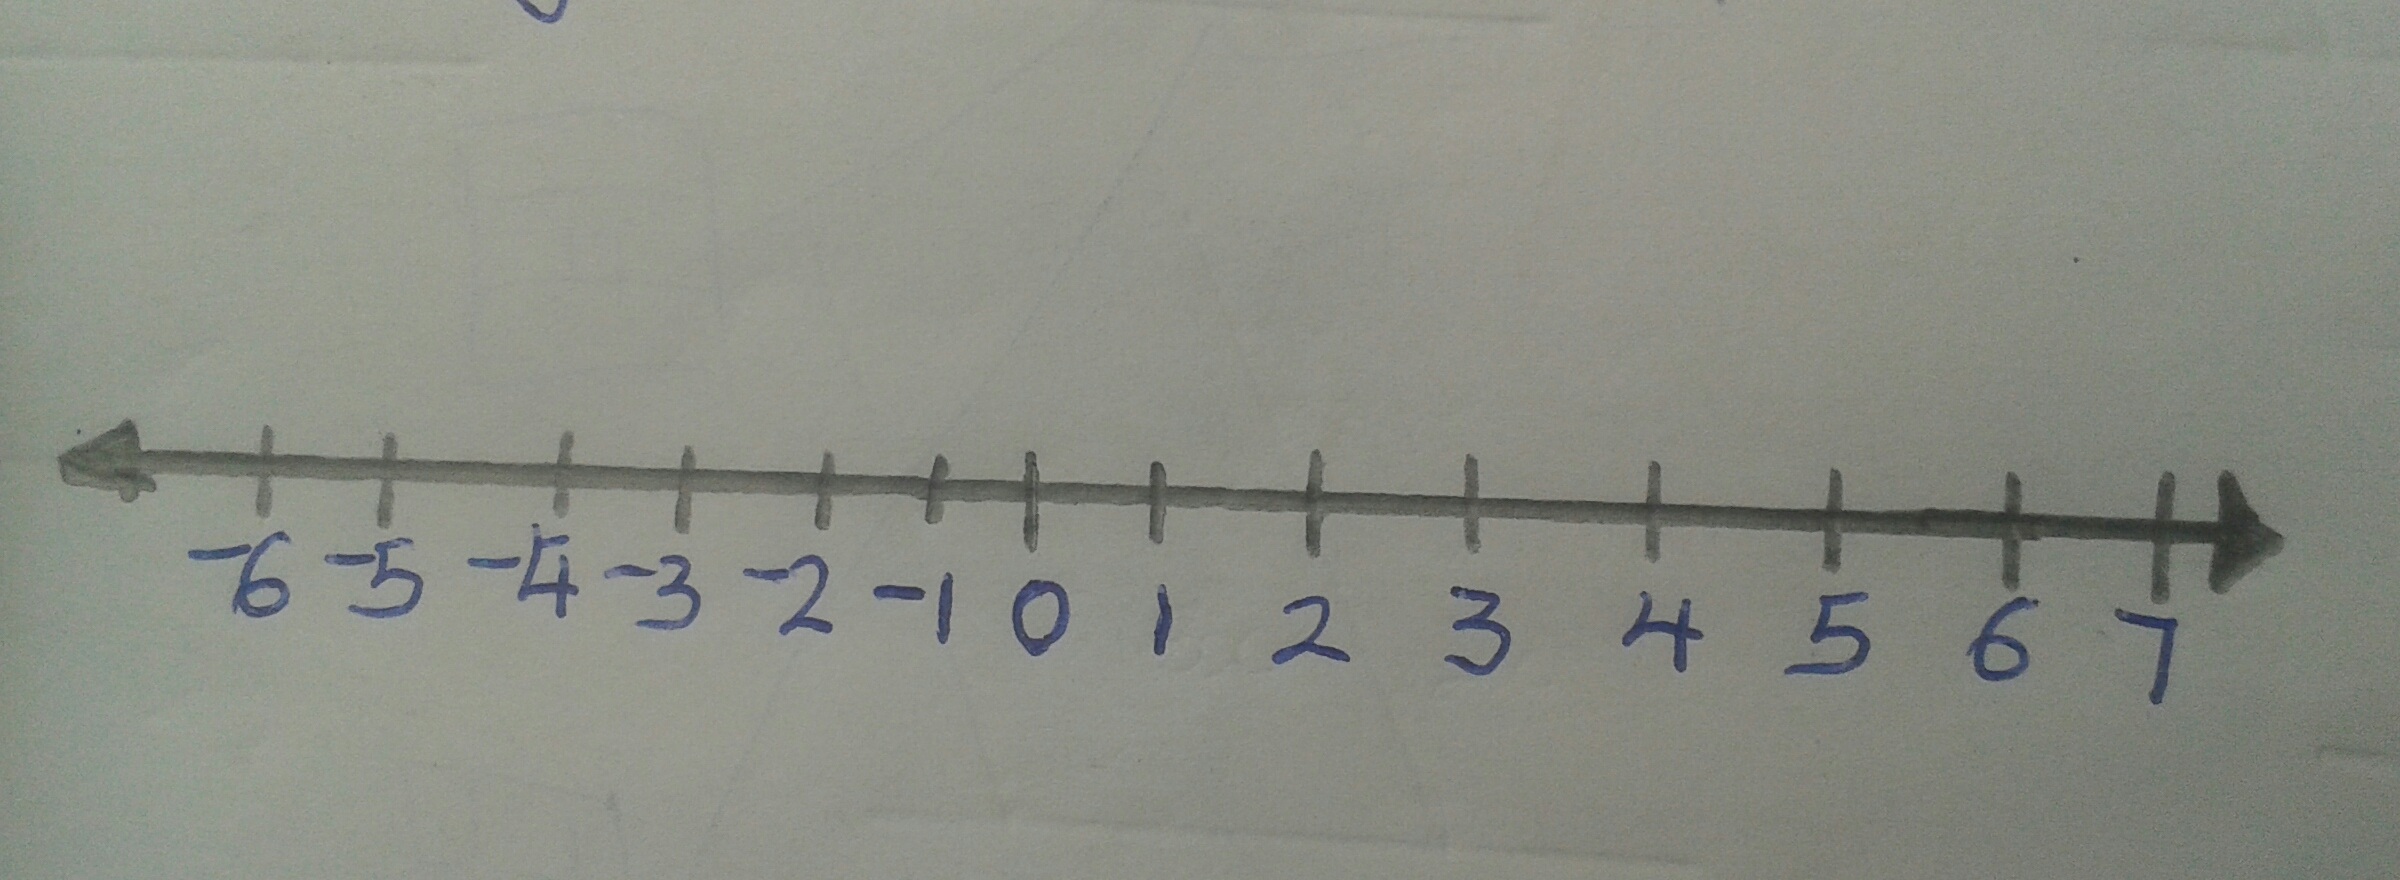 -6 -5 -4 -3 -2 -1 0 1 2 3 4 5 6 7